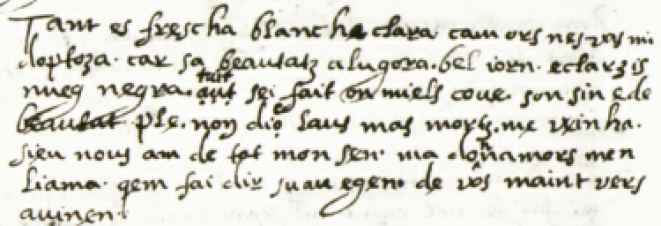 Tant es frescha blancha clara camors nes ves mi
doptoza. car sa beautatz alugora. bel iorn. e clarzis
nueg negra. tut sei fait on miels coue. son fin e de
beautat ple. non dic laus mas mortz. me veinha.
sieu nous am de tot mon sen. ma donnamors men
liama. qem fai dir suau e gen. de vos maint vers
auinen.